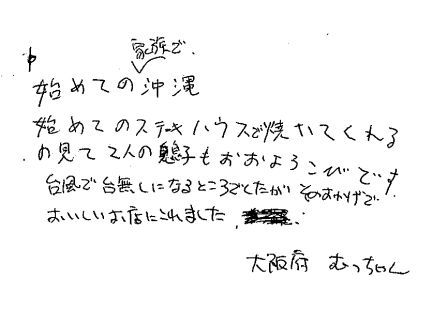 家族で、
始めての沖縄
始めてのステーキハウスで焼いてくれる
の見て2人の息子もおおよろこびです
台風で台無しになるところでしたがそのおかげで
おいしいお店にこれました
大阪府 むっちゃん